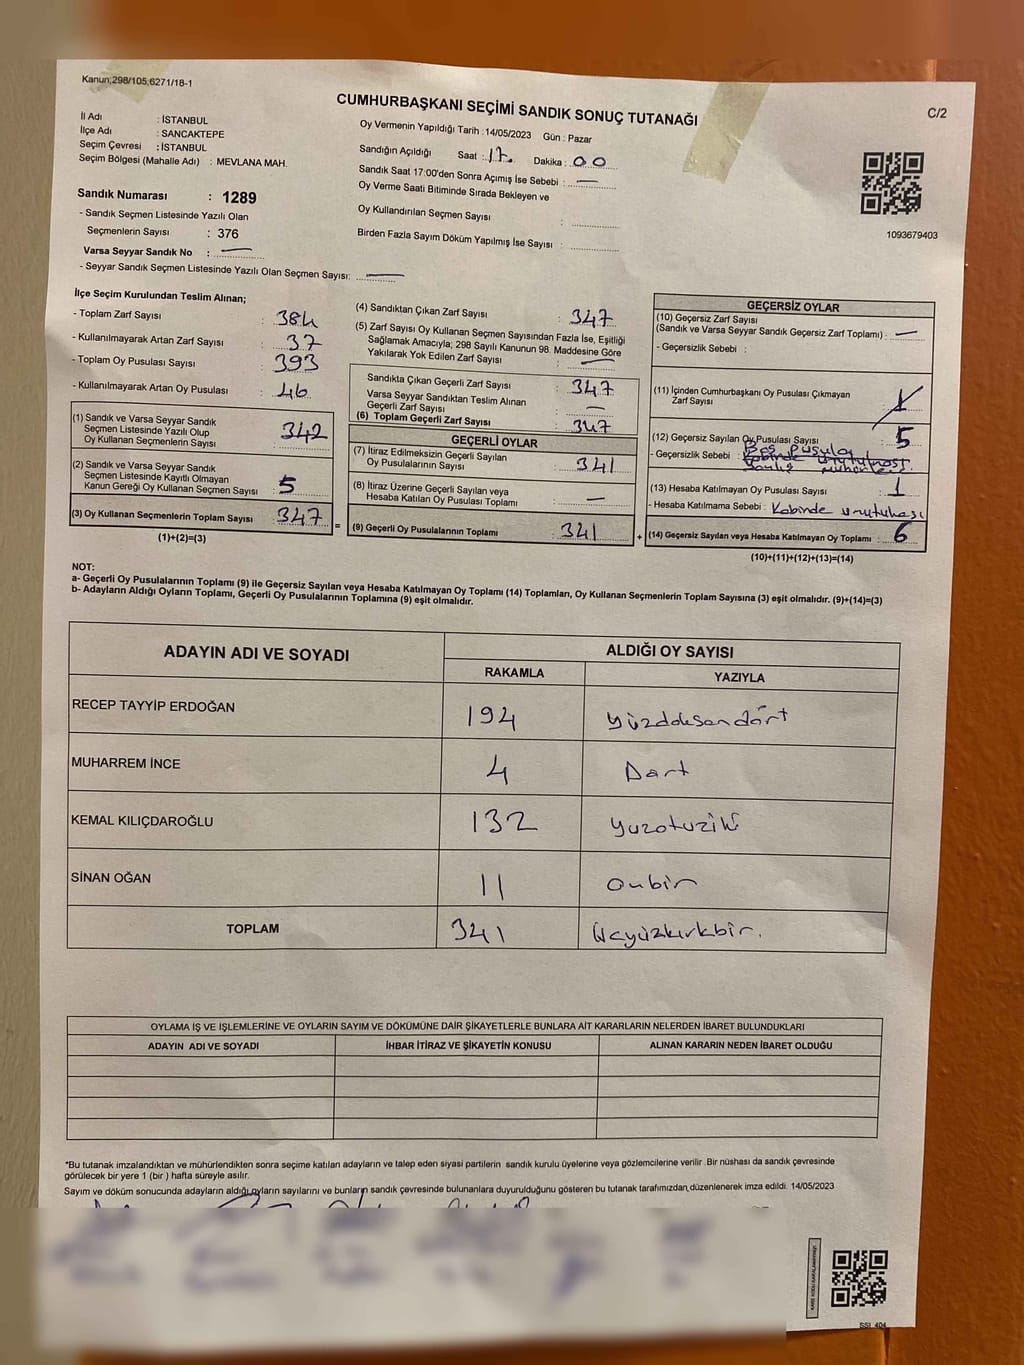 Kanun;298/105,6271/18-1
CUMHURBAŞKANI SEÇİMİ SANDIK SONUÇ TUTANAĞI
C/2
İl Adı : İSTANBUL
İlçe Adı : SANCAKTEPE
Seçim Çevresi : İSTANBUL
Seçim Bölgesi (Mahalle Adı) : MEVLANA MAH.
Sandık Numarası : 1289
- Sandık Seçmen Listesinde Yazılı Olan
Seçmenlerin Sayısı : 376
Varsa Seyyar Sandık No : —
- Seyyar Sandık Seçmen Listesinde Yazılı Olan Seçmen Sayısı: —
Oy Vermenin Yapıldığı Tarih :14/05/2023 Gün : Pazar
Sandığın Açıldığı Saat : 17 Dakika : 00
Sandık Saat 17:00'den Sonra Açımış İse Sebebi : —
Oy Verme Saati Bitiminde Sırada Bekleyen ve
Oy Kullandırılan Seçmen Sayısı :
Birden Fazla Sayım Döküm Yapılmış İse Sayısı :
1093679403
İlçe Seçim Kurulundan Teslim Alınan;
- Toplam Zarf Sayısı : 384
- Kullanılmayarak Artan Zarf Sayısı : 37
- Toplam Oy Pusulası Sayısı : 393
- Kullanılmayarak Artan Oy Pusulası : 46
(1) Sandık ve Varsa Seyyar Sandık
Seçmen Listesinde Yazılı Olup
Oy Kullanan Seçmenlerin Sayısı : 342
(2) Sandık ve Varsa Seyyar Sandık
Seçmen Listesinde Kayıtlı Olmayan
Kanun Gereği Oy Kullanan Seçmen Sayısı : 5
(3) Oy Kullanan Seçmenlerin Toplam Sayısı : 347
(1)+(2)=(3)
=
(4) Sandıktan Çıkan Zarf Sayısı : 347
(5) Zarf Sayısı Oy Kullanan Seçmen Sayısından Fazla İse, Eşitliği
Sağlamak Amacıyla; 298 Sayılı Kanunun 98. Maddesine Göre
Yakılarak Yok Edilen Zarf Sayısı : —
Sandıkta Çıkan Geçerli Zarf Sayısı : 347
Varsa Seyyar Sandıktan Teslim Alınan
Geçerli Zarf Sayısı : —
(6) Toplam Geçerli Zarf Sayısı : 347
GEÇERLİ OYLAR
(7) İtiraz Edilmeksizin Geçerli Sayılan
Oy Pusulalarının Sayısı : 341
(8) İtiraz Üzerine Geçerli Sayılan veya
Hesaba Katılan Oy Pusulası Toplamı : —
(9) Geçerli Oy Pusulalarının Toplamı : 341
+
GEÇERSİZ OYLAR
(10) Geçersiz Zarf Sayısı
(Sandık ve Varsa Seyyar Sandık Geçersiz Zarf Toplamı) : —
- Geçersizlik Sebebi :
(11) İçinden Cumhurbaşkanı Oy Pusulası Çıkmayan
Zarf Sayısı :
(12) Geçersiz Sayılan Oy Pusulası Sayısı : 5
- Geçersizlik Sebebi : Beş pusula
(13) Hesaba Katılmayan Oy Pusulası Sayısı : 1
- Hesaba Katılmama Sebebi : Kabinde unutulması
(14) Geçersiz Sayılan veya Hesaba Katılmayan Oy Toplamı : 6
(10)+(11)+(12)+(13)=(14)
NOT:
a- Geçerli Oy Pusulalarının Toplamı (9) ile Geçersiz Sayılan veya Hesaba Katılmayan Oy Toplamı (14) Toplamları, Oy Kullanan Seçmenlerin Toplam Sayısına (3) eşit olmalıdır. (9)+(14)=(3)
b- Adayların Aldığı Oyların Toplamı, Geçerli Oy Pusulalarının Toplamına (9) eşit olmalıdır.
ADAYIN ADI VE SOYADI ALDIĞI OY SAYISI
RAKAMLA YAZIYLA
RECEP TAYYİP ERDOĞAN 194 yüzdoksandört
MUHARREM İNCE 4 Dört
KEMAL KILIÇDAROĞLU 132 yuzotuziki
SİNAN OĞAN 11 onbir
TOPLAM 341 üçyüzkırkbir.
OYLAMA İŞ VE İŞLEMLERİNE VE OYLARIN SAYIM VE DÖKÜMÜNE DAİR ŞİKAYETLERLE BUNLARA AİT KARARLARIN NELERDEN İBARET BULUNDUKLARI
ADAYIN ADI VE SOYADI İHBAR İTİRAZ VE ŞİKAYETİN KONUSU ALINAN KARARIN NEDEN İBARET OLDUĞU
*Bu tutanak imzalandıktan ve mühürlendikten sonra seçime katılan adayların ve talep eden siyasi partilerin sandık kurulu üyelerine veya gözlemcilerine verilir. Bir nüshası da sandık çevresinde
görülecek bir yere 1 (bir ) hafta süreyle asılır.
Sayım ve döküm sonucunda adayların aldığı oyların sayılarını ve bunların sandık çevresinde bulunanlara duyurulduğunu gösteren bu tutanak tarafımızdan düzenlenerek imza edildi. 14/05/2023